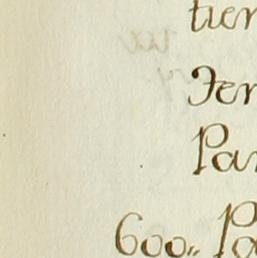 tier
Fer
Par
600,, Pa